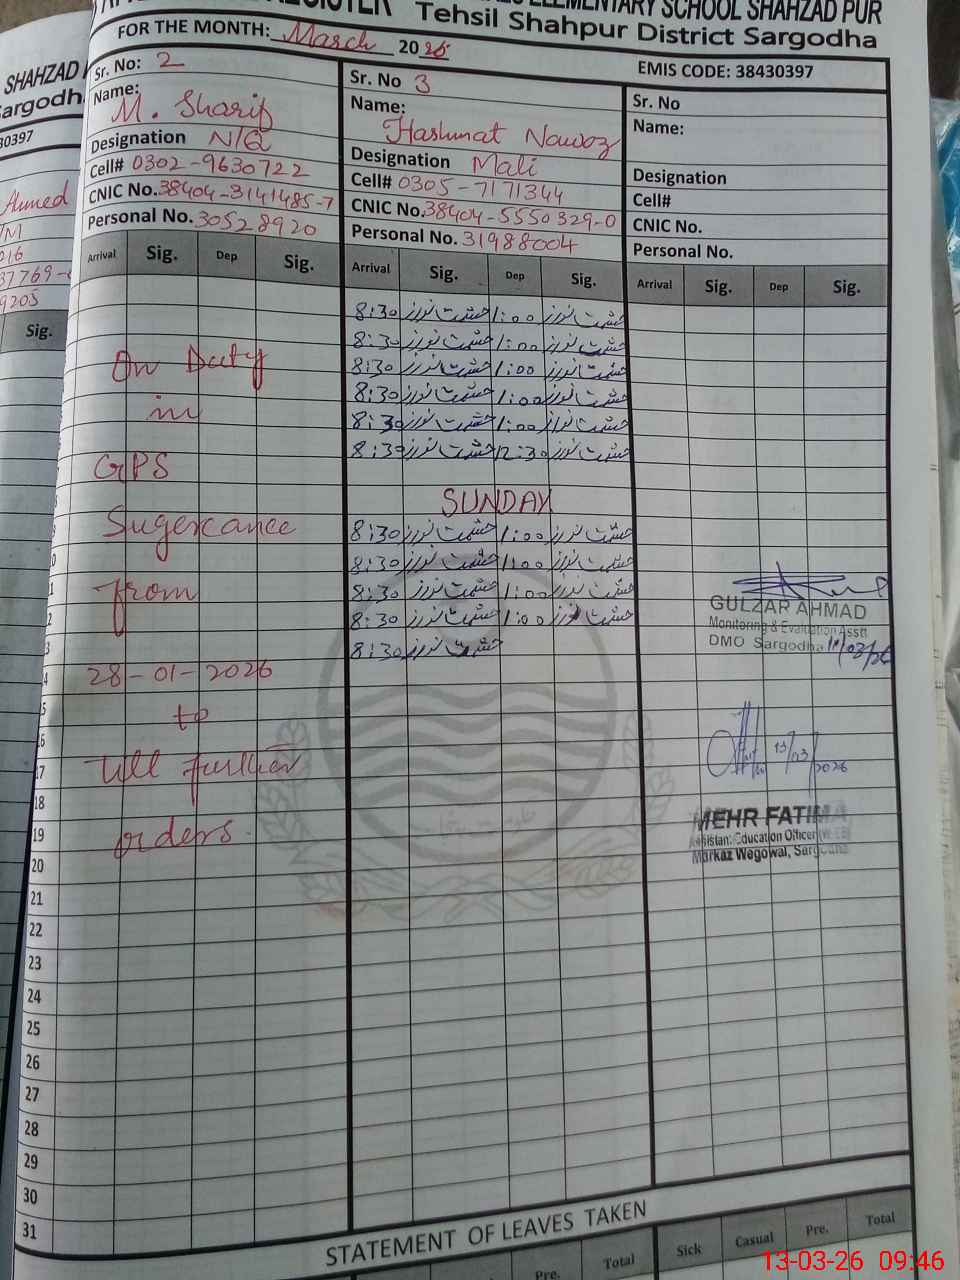 ELEMENTARY SCHOOL SHAHZAD PUR
Tehsil Shahpur District Sargodha
FOR THE MONTH: March 2026
EMIS CODE: 38430397
Sr. No: 2
Name: M. Sharif
Designation N/Q
Cell# 0302-9630722
CNIC No. 38404-3141485-7
Personal No. 30528920
Sr. No 3
Name: Hashmat Nawaz
Designation Mali
Cell# 0305-7171344
CNIC No. 38404-5550329-0
Personal No. 31988004
Sr. No
Name:
Designation
Cell#
CNIC No.
Personal No.
Arrival Sig. Dep Sig. Arrival Sig. Dep Sig. Arrival Sig. Dep Sig.
8:30 حشمت نواز 1:00 حشمت نواز
8:30 حشمت نواز 1:00 حشمت نواز
8:30 حشمت نواز 1:00 حشمت نواز
8:30 حشمت نواز 1:00 حشمت نواز
8:30 حشمت نواز 1:00 حشمت نواز
8:30 حشمت نواز 12:30 حشمت نواز
SUNDAY
8:30 حشمت نواز 1:00 حشمت نواز
8:30 حشمت نواز 1:00 حشمت نواز
8:30 حشمت نواز 1:00 حشمت نواز
8:30 حشمت نواز 1:00 حشمت نواز
8:30 حشمت نواز
On Duty
in
GPS
from
28-01-2026
to
till further
orders.
GULZAR AHMAD
Monitoring & Evaluation Asstt
DMO Sargodha
13/03/2026
MEHR FATIMA
Assistant Education Officer
Markaz Wegowal, Sargodha
16
17
18
19
20
21
22
23
24
25
26
27
28
29
30
31
STATEMENT OF LEAVES TAKEN
Pre. Total Sick Casual Pre. Total
SHAHZAD
Sargodh
30397
Ahmed
9205
Sig.
13-03-26 09:46